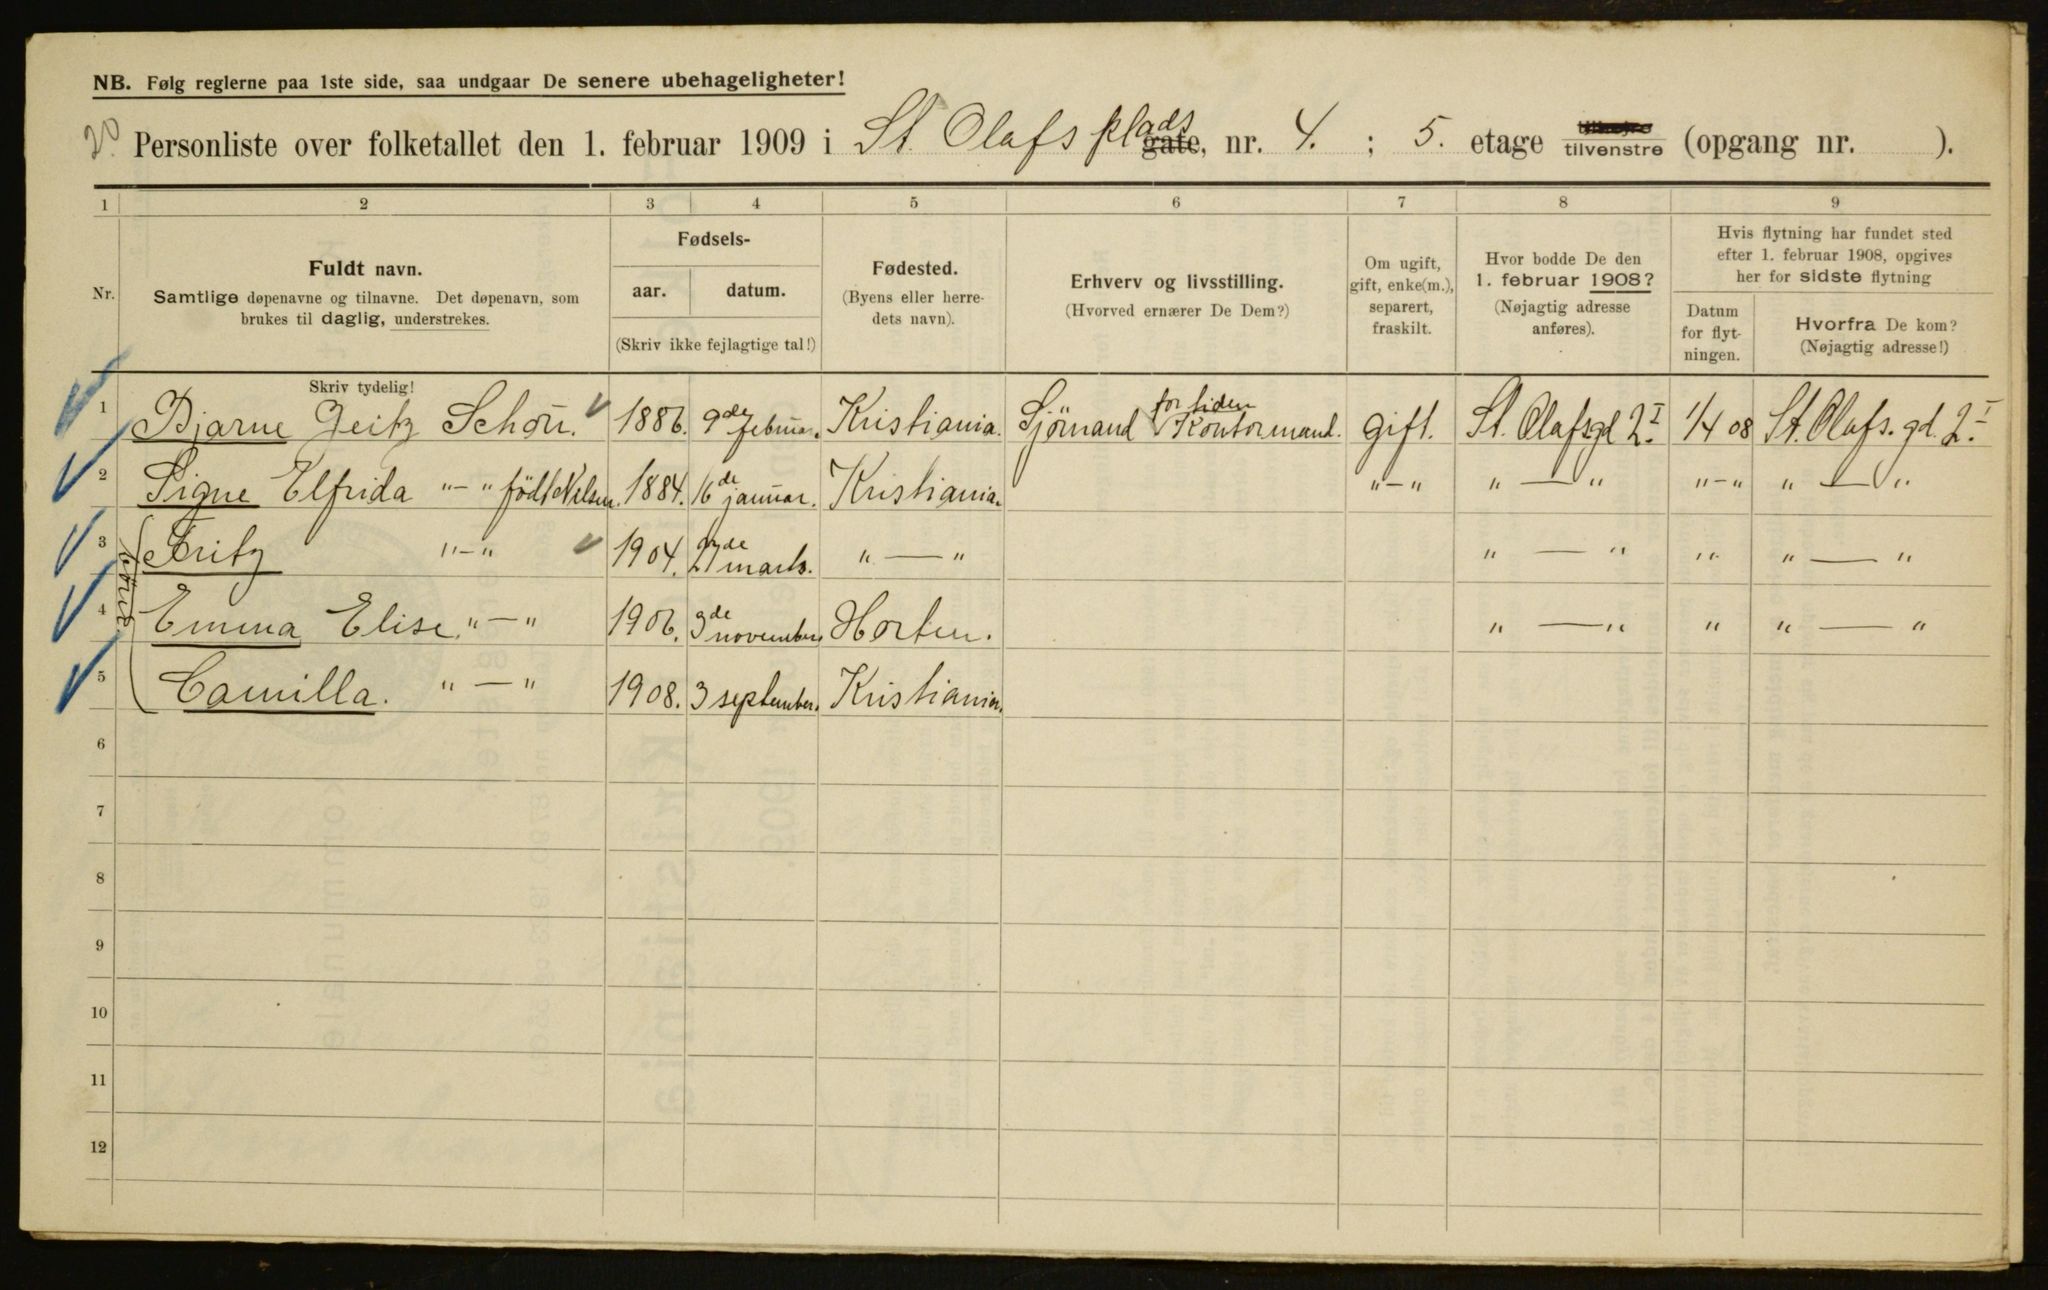 NB. Følg reglerne paa 1ste side, saa undgaar De senere ubehageligheter!
20. Personliste over folketallet den 1. februar 1909 i St. Olafs plads gate, nr. 4. ; 5. etage tilvenstre (opgang nr. ).
1 2 3 4 5 6 7 8 9
Nr.
Fuldt navn.
Samtlige døpenavne og tilnavne. Det døpenavn, som
brukes til daglig, understrekes.
Fødsels-
aar. datum.
(Skriv ikke fejlagtige tal!)
Fødested.
(Byens eller herre-
dets navn).
Erhverv og livsstilling.
(Hvorved ernærer De Dem?)
Om ugift,
gift, enke(m.),
separert,
fraskilt.
Hvor bodde De den
1. februar 1908?
(Nøjagtig adresse
anføres).
Hvis flytning har fundet sted
efter 1. februar 1908, opgives
her for sidste flytning
Datum
for flyt-
ningen.
Hvorfra De kom?
(Nøjagtig adresse!)
Skriv tydelig!
1 Bjarne Geitz Schou. 1886. 9de februar. Kristiania. Sjømand for tiden Kontormand. gift. St. Olafsgd 2 I 1/4 08 St. Olafs. gd. 2 I
2 Signe Elfrida "—" født Nilsen. 1884. 16de januar. Kristiania. "—" " — " "—" " — "
børn
3 Fritz "—" 1904. 27de marts. " — " " — " " " — "
4 Emma Elise. "—" 1906. 3de november. Horten. " — " " " — "
5 Camilla. "—" 1908. 3 september. Kristiania.
6
7
8
9
10
11
12